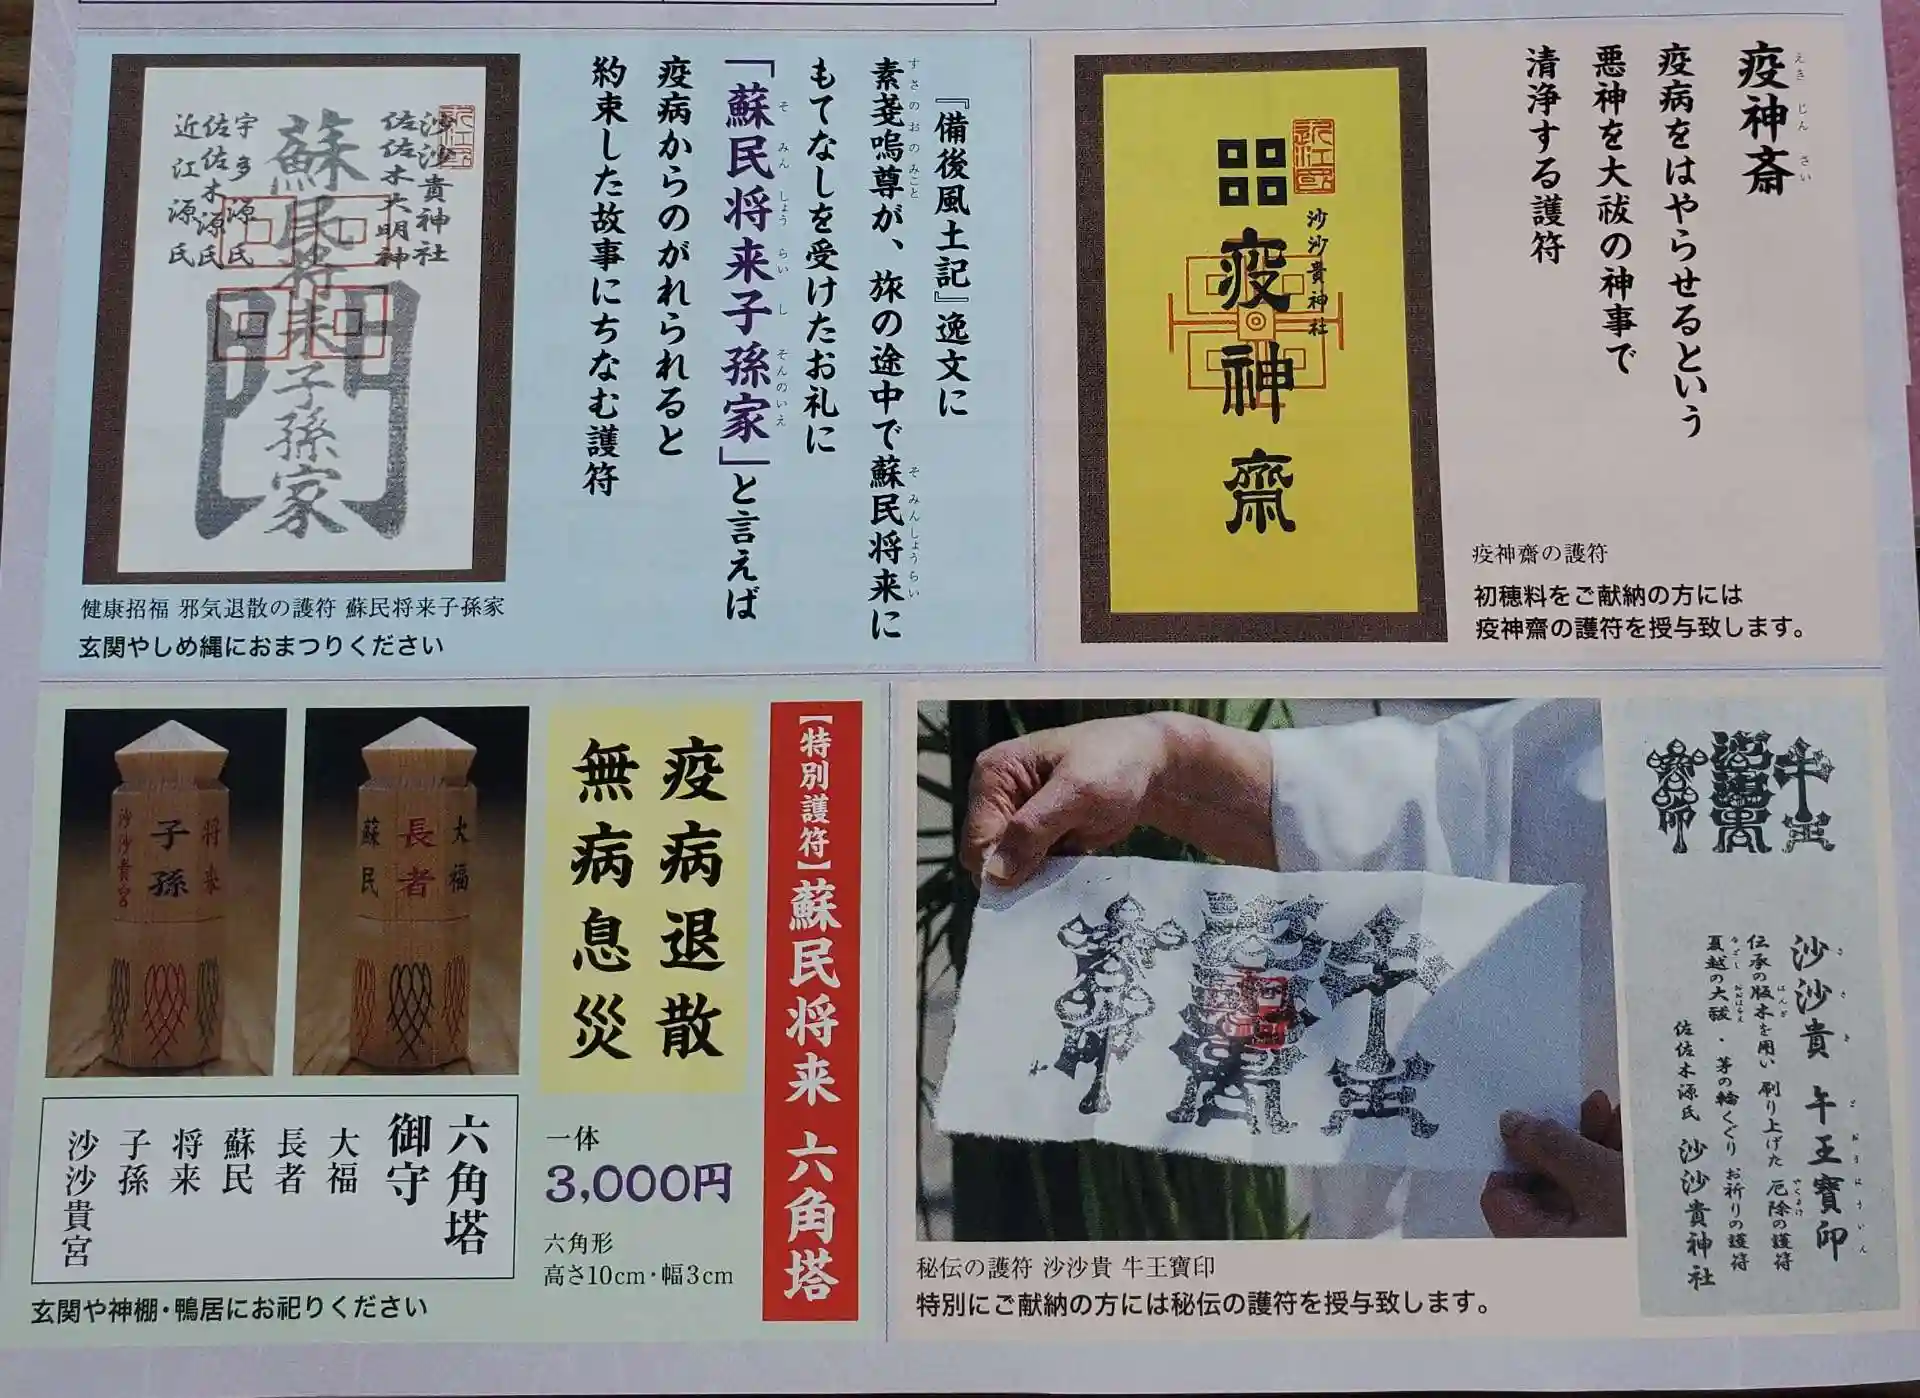 疫神斎
えきじんさい
疫病をはやらせるという
悪神を大祓の神事で
清浄する護符
沙沙貴神社
疫神齋
疫神齋の護符
初穂料をご献納の方には
疫神齋の護符を授与致します。
『備後風土記』逸文に
素戔嗚尊が、旅の途中で蘇民将来に
すさのおのみこと
そみんしょうらい
もてなしを受けたお礼に
「蘇民将来子孫家」と言えば
そみんしょうらいしそんのいえ
疫病からのがれられると
約束した故事にちなむ護符
沙沙貴神社
佐佐木大明神
蘇民将来子孫家
門
宇多源氏
佐佐木源氏
近江源氏
健康招福 邪気退散の護符 蘇民将来子孫家
玄関やしめ縄におまつりください
【特別護符】蘇民将来 六角塔
疫病退散
無病息災
一体
3,000円
六角形
高さ10cm・幅3cm
大福
長者
蘇民
将来
子孫
沙沙貴宮
六角塔
御守
大福
長者
蘇民
将来
子孫
沙沙貴宮
玄関や神棚・鴨居にお祀りください
沙沙貴 牛王寶印
ささき ごおうほういん
伝承の版木を用い 刷り上げた 厄除の護符
はんぎ
やくよけ
夏越の大祓・茅の輪くぐり お祈りの護符
なごし おおはらえ
佐佐木源氏 沙沙貴神社
秘伝の護符 沙沙貴 牛王寶印
特別にご献納の方には秘伝の護符を授与致します。